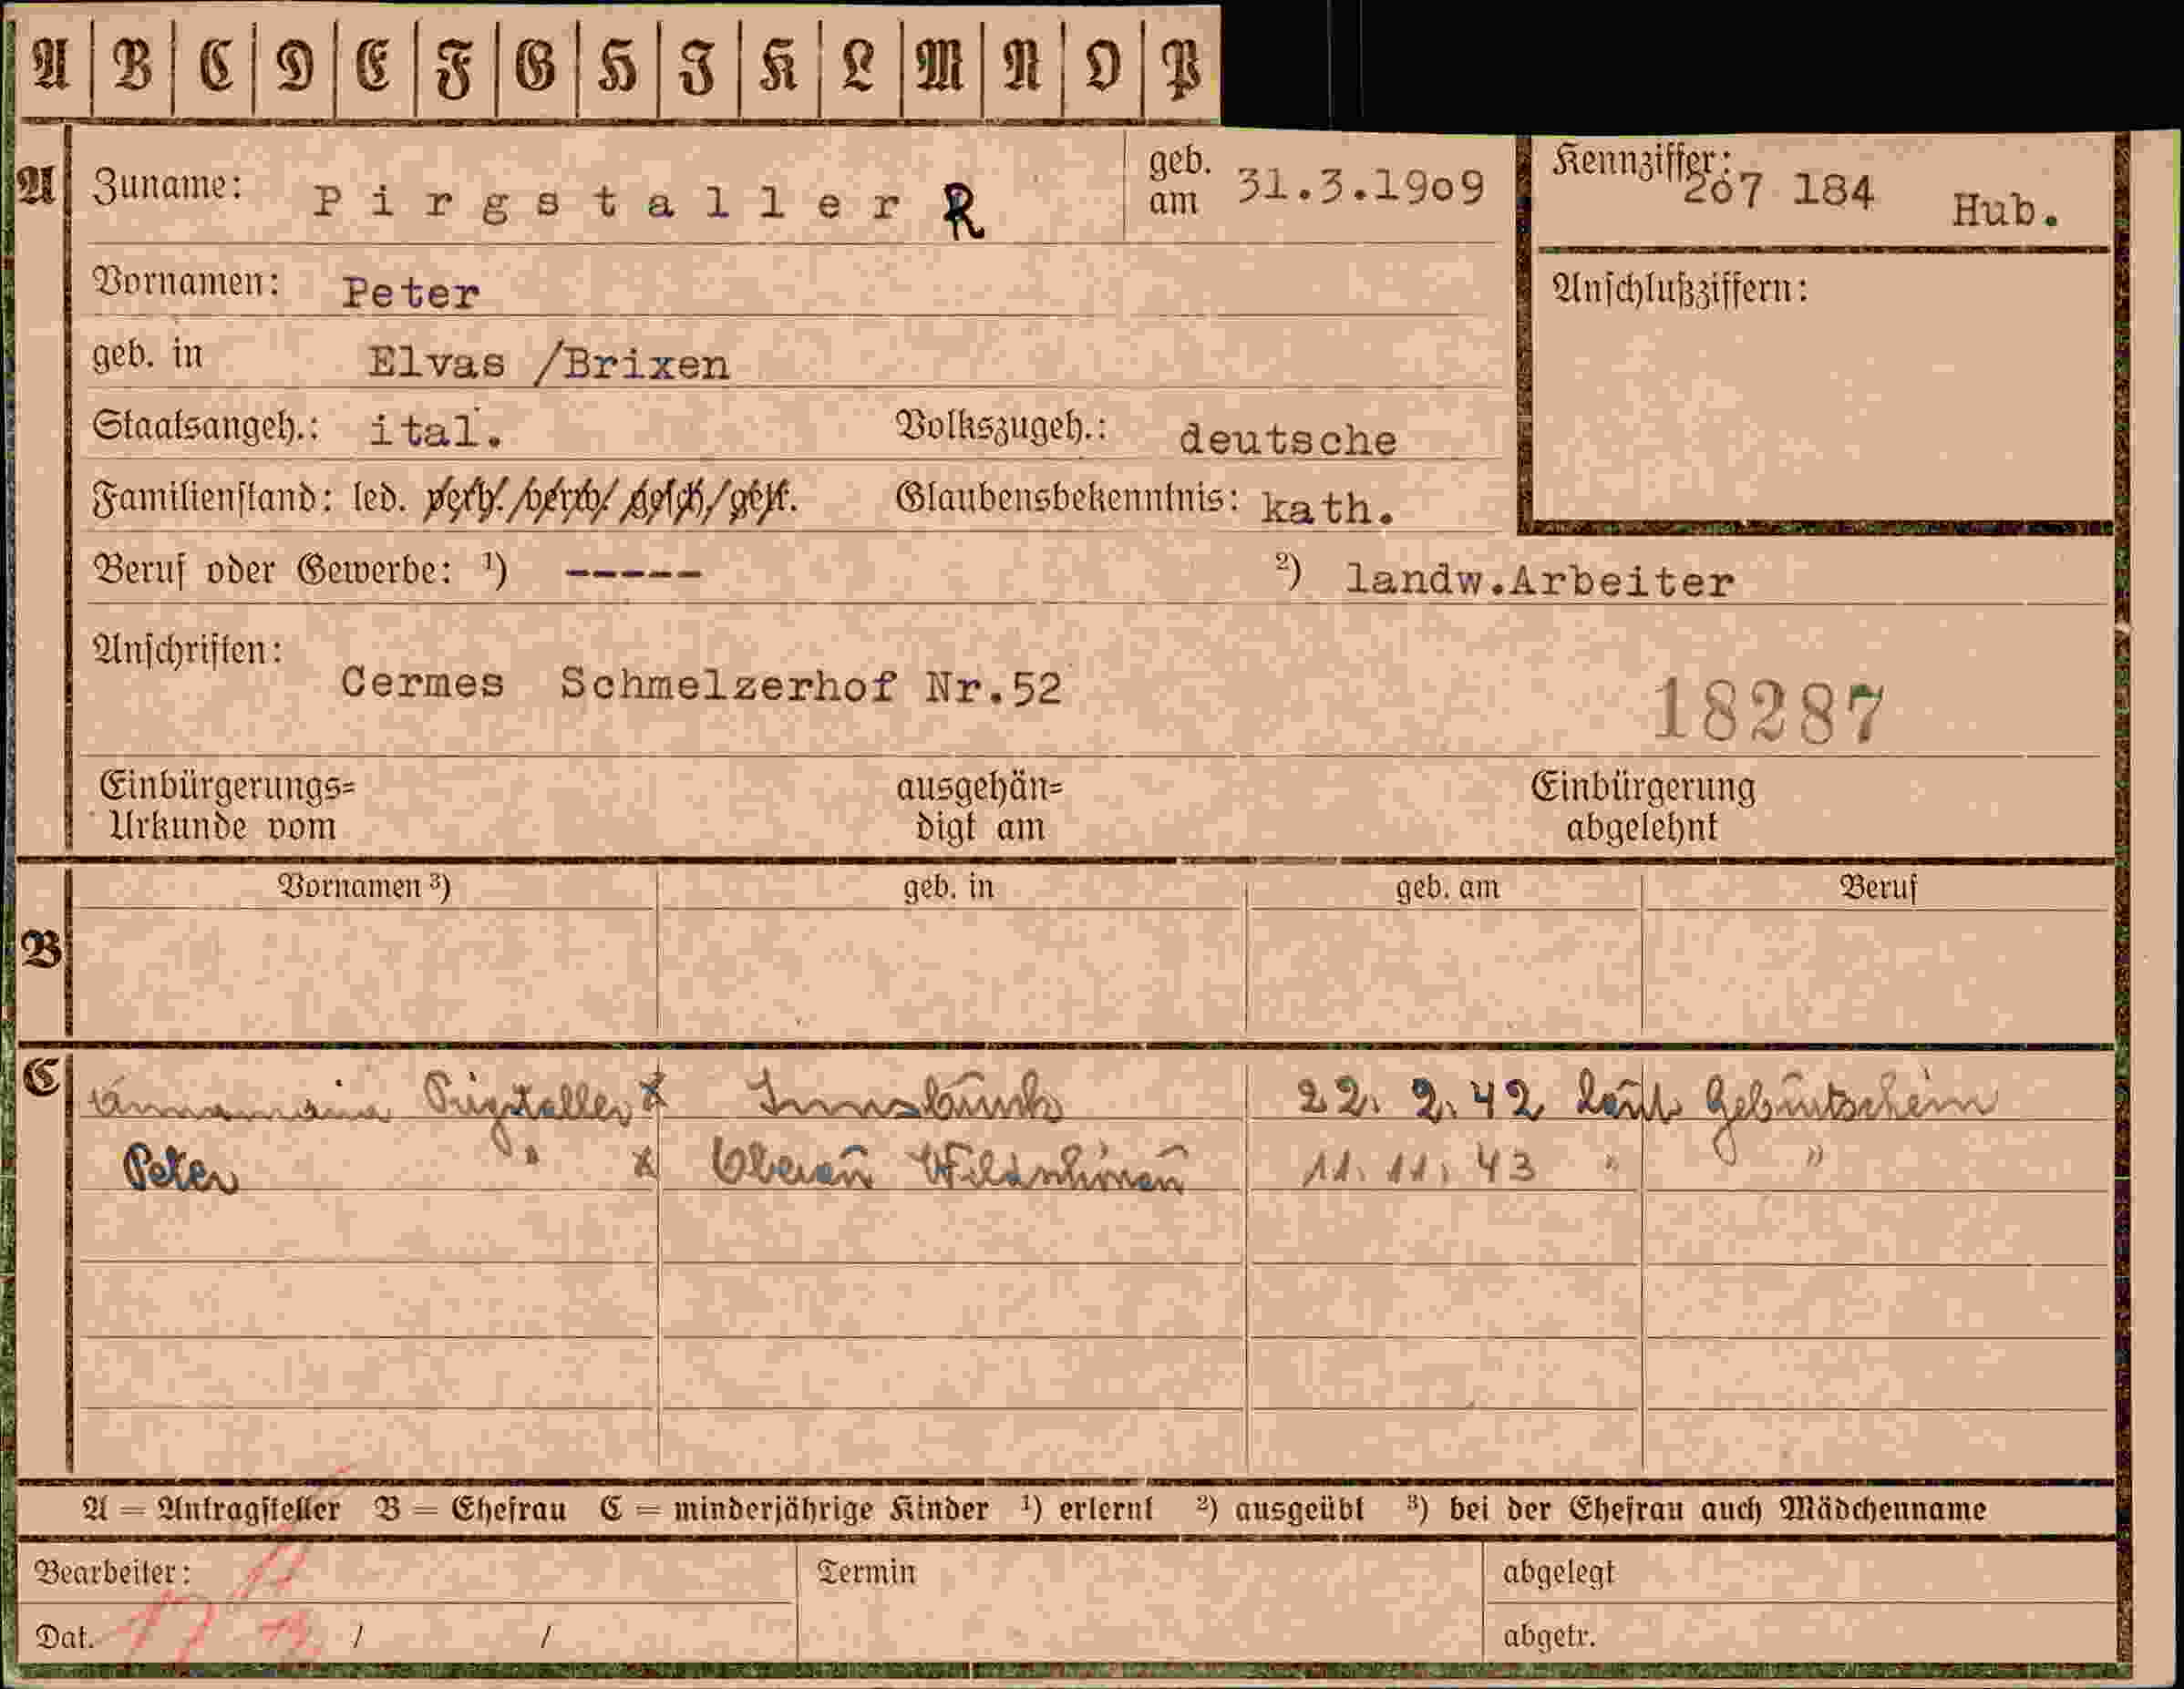 A B C D E F G H I K L M N O P
A Zuname: Pirgstaller R geb. am 31.3.1909 Kennziffer: 207 184 Hub.
Vornamen: Peter Anschlußziffern:
geb. in Elvas /Brixen
Staatsangeh.: ital. Volkszugeh.: deutsche
Familienstand: led. verh./verw./gesch./gest. Glaubensbekenntnis: kath.
Beruf oder Gewerbe: ¹) ----- ²) landw.Arbeiter
Anschriften:
Cermes Schmelzerhof Nr.52
18287
Einbürgerungs= Urkunde vom ausgehän= digt am Einbürgerung abgelehnt
Vornamen ³) geb. in geb. am Beruf
B
C Annamaria Pirgstaller x Innsbruck 22. 2. 42 laut Geburtschein
Peter " x Oberau Wildschönau 11. 11. 43 " "
A = Antragsteller B = Ehefrau C = minderjährige Kinder ¹) erlernt ²) ausgeübt ³) bei der Ehefrau auch Mädchenname
Bearbeiter: Termin abgelegt
Dat. / / abgetr.